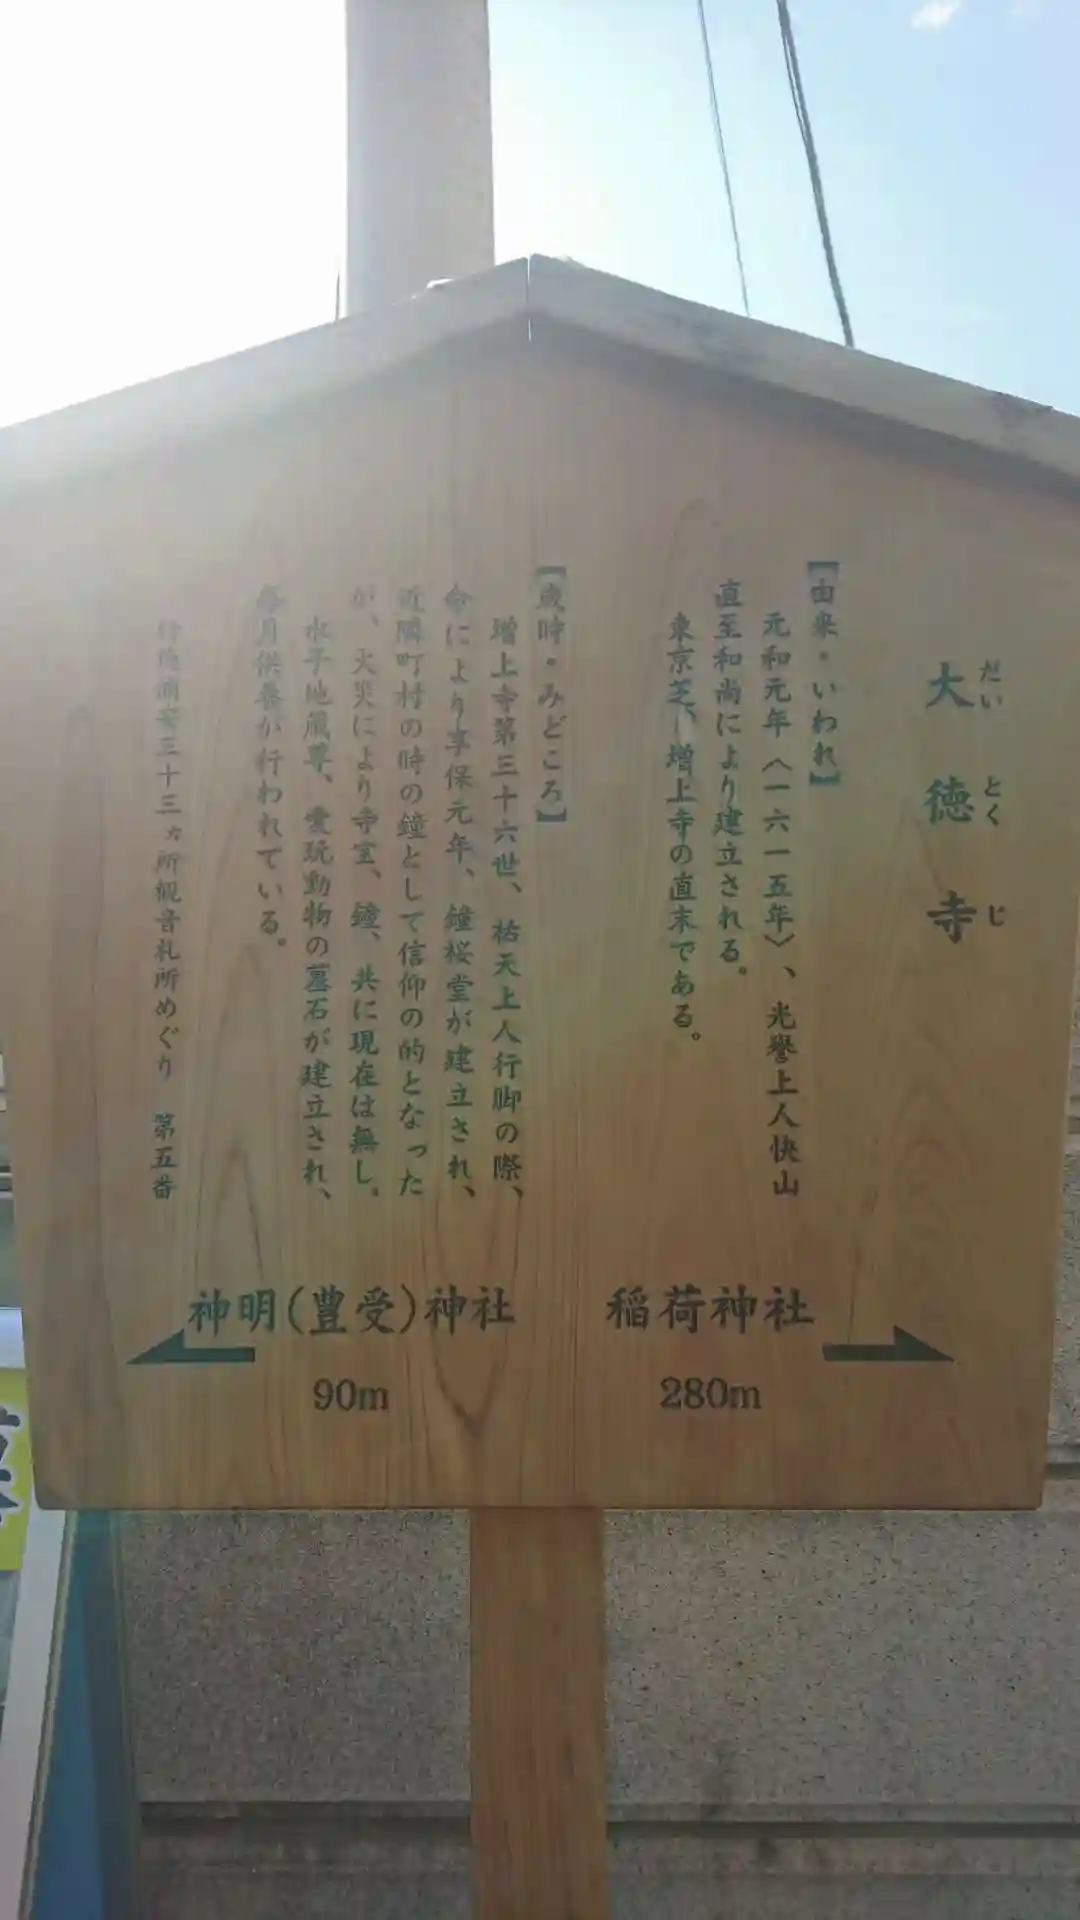 大徳寺
だいとくじ
【由来・いわれ】
元和元年〈一六一五年〉、光誉上人快山
直至和尚により建立される。
東京芝、増上寺の直末である。
【歳時・みどころ】
増上寺第三十六世、祐天上人行脚の際、
命により享保元年、鐘桜堂が建立され、
近隣町村の時の鐘として信仰の的となった
が、火災により寺宝、鐘、共に現在は無し。
水子地蔵尊、愛玩動物の墓石が建立され、
毎月供養が行われている。
行徳浦安三十三ヵ所観音札所めぐり 第五番
稲荷神社
280m
神明(豊受)神社
90m